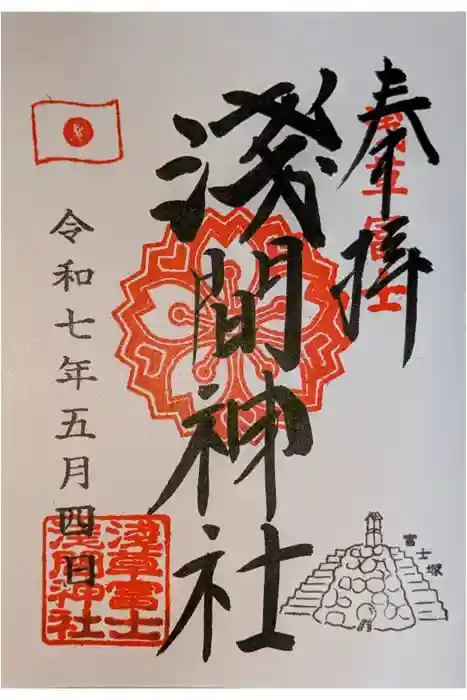 奉拝
浅草富士
淺間神社
令和七年五月四日
浅草富士
浅間神社
富士塚